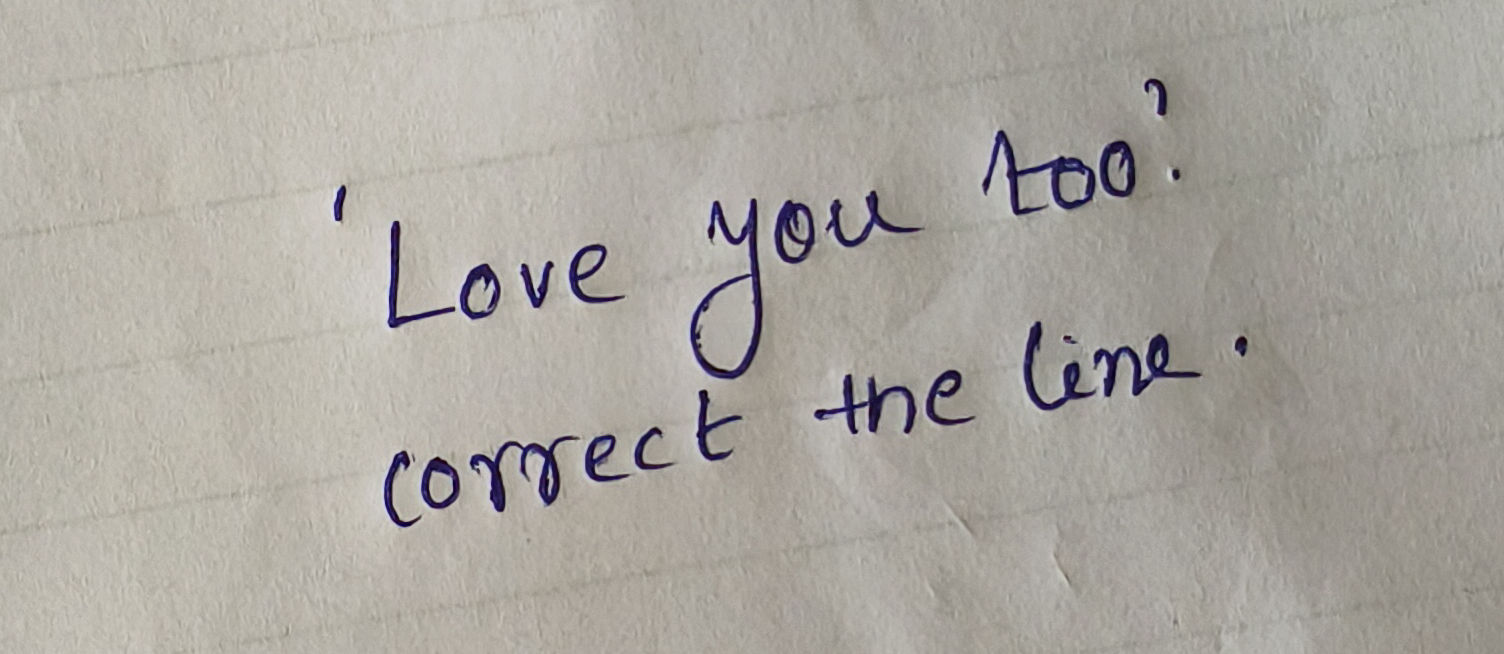 'Love you too'.
correct the line.